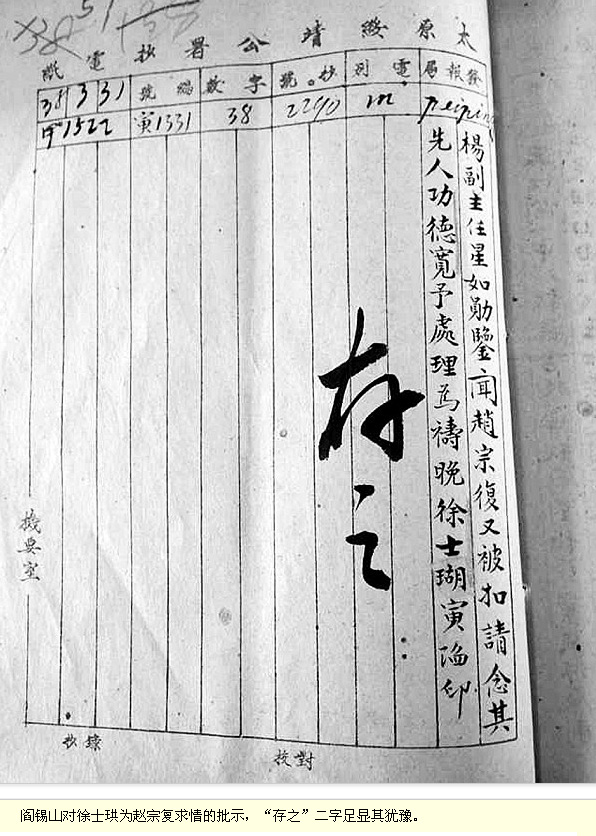 太原綏靖公署抄電紙
發報局 電別 抄號 字數 總號 38 3 31
Peiping m 2290 38 寅1331 1522
楊副主任星如勛鑒聞趙宗復又被扣請念其
先人功德寬予處理為禱晚徐士瑚寅陷印
存之
機要室
校對
抄錄
阎锡山对徐士珙为赵宗复求情的批示，“存之”二字足显其犹豫。